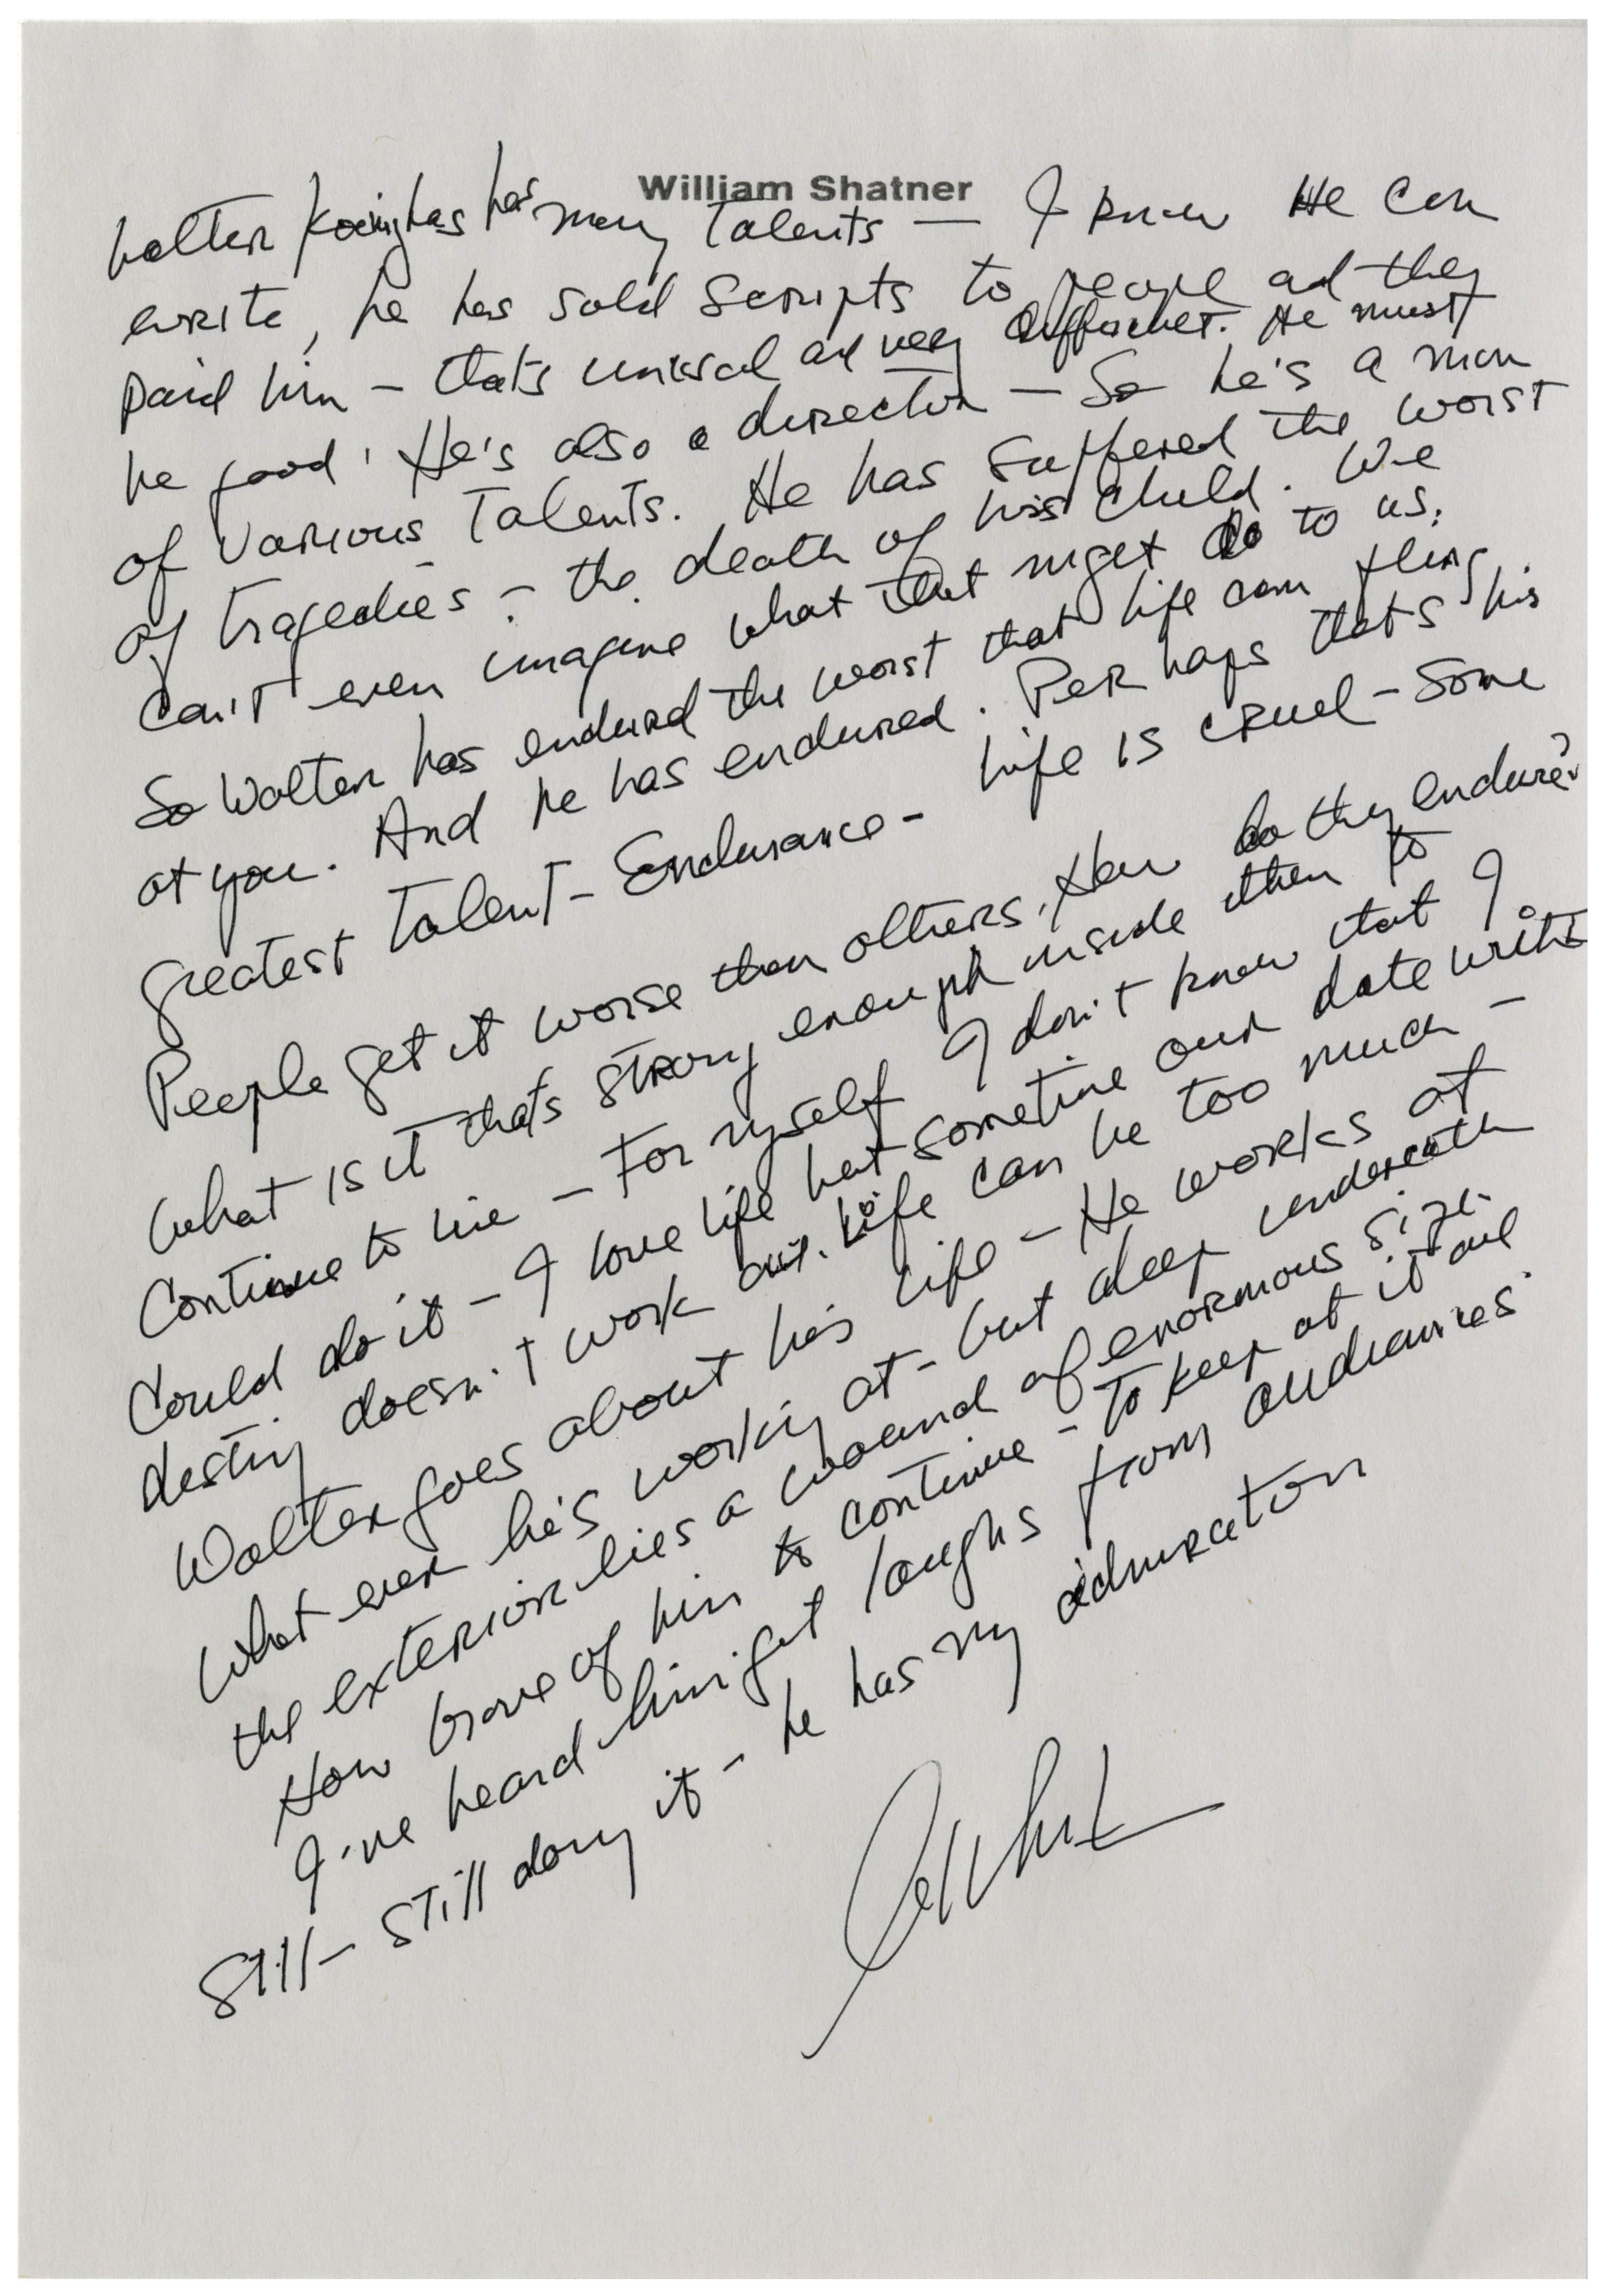 William Shatner
Walter Koenig has has many Talents — I know He can
write, he has sold scripts to people and they
paid him — thats unusual and very difficult. He must
be good. He's also a director — So he's a man
of various Talents. He has suffered the worst
of tragedies — the death of his child. We
can't even imagine what that might do to us.
So Walter has endured the worst that life can fling
at you. And he has endured. Perhaps thats his
greatest Talent — Endurance — Life is cruel — Some
People get it worse than others. How do they endure?
What is it thats strong enough inside them to
continue to live — For myself I don't know that I
could do it — I love life but sometime our date with
destiny doesn't work out. Life can be too much —
Walter goes about his life — He works at
what ever he's working at — but deep underneath
the exterior lies a wound of enormous size.
How brave of him to continue — To keep at it all
I've heard him get laughs from audiences
Still — Still doing it — he has my admiration